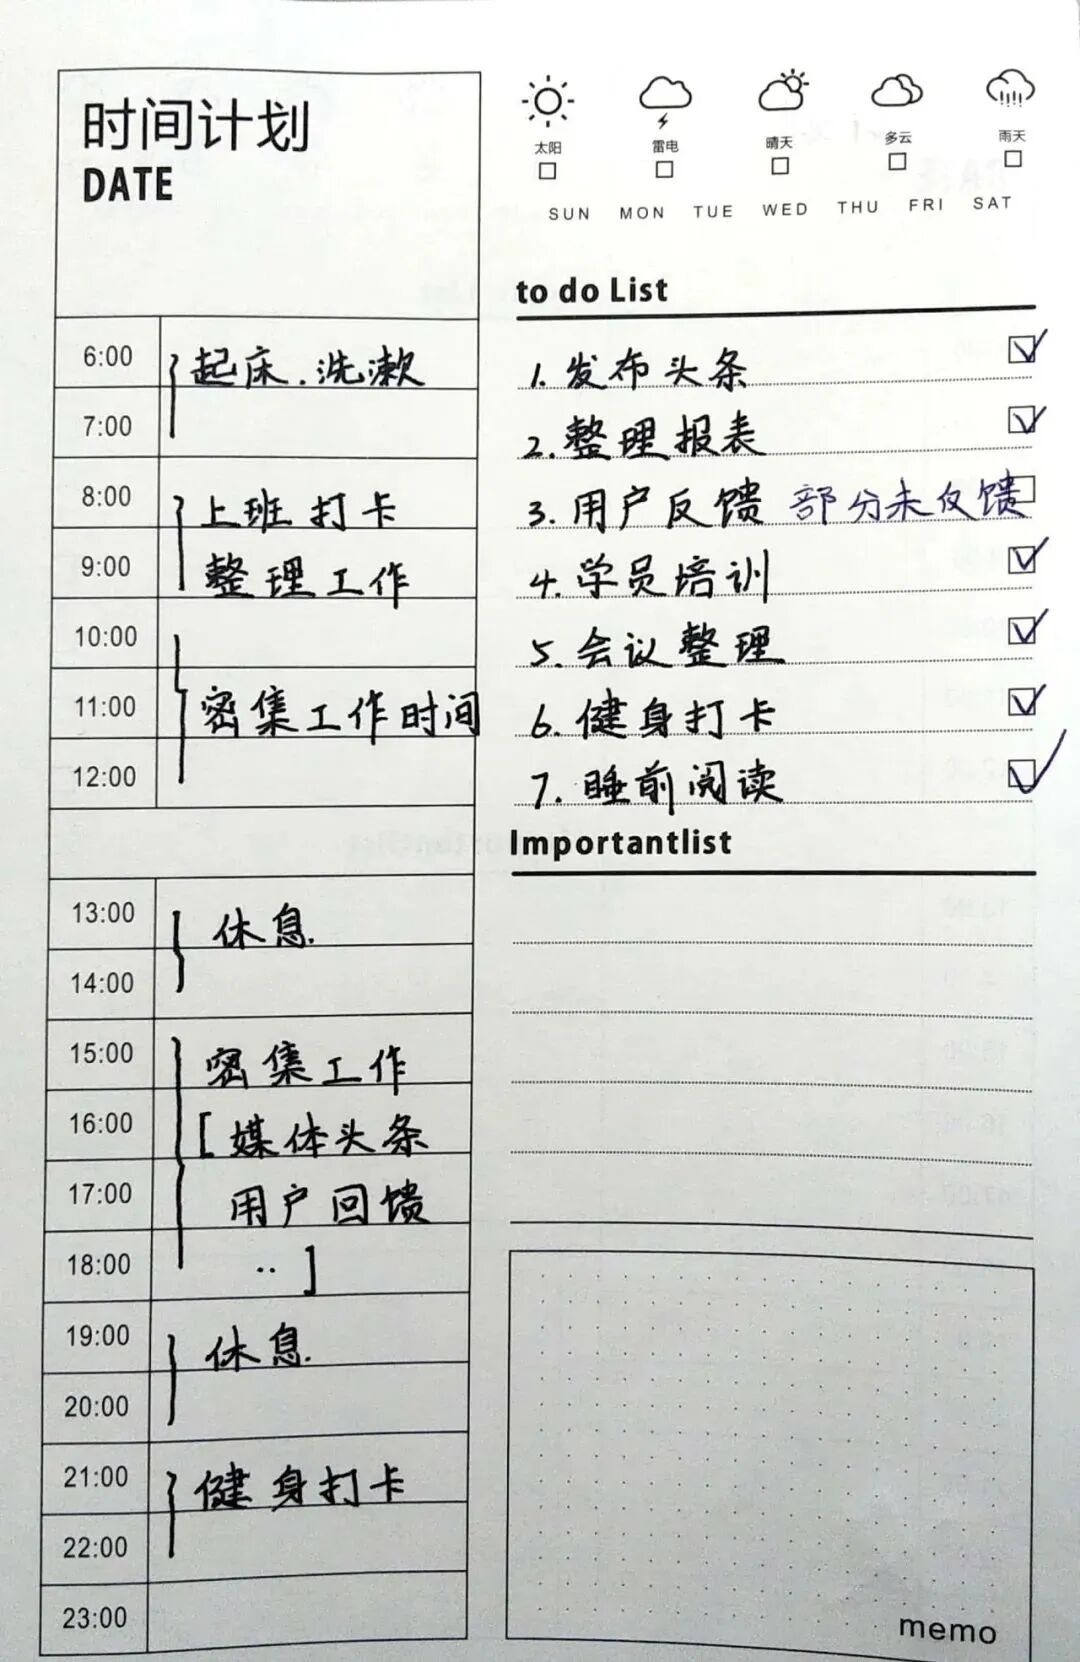 时间计划
DATE
6:00 起床.洗漱
7:00
8:00 上班打卡
9:00 整理工作
10:00
11:00 密集工作时间
12:00
13:00 休息.
14:00
15:00 密集工作
16:00 [媒体头条
17:00 用户回馈
18:00 ..]
19:00 休息.
20:00
21:00 健身打卡
22:00
23:00
太阳 雷电 晴天 多云 雨天
SUN MON TUE WED THU FRI SAT
to do List
1. 发布头条
2. 整理报表
3. 用户反馈 部分未反馈
4. 学员培训
5. 会议整理
6. 健身打卡
7. 睡前阅读
Importantlist
memo